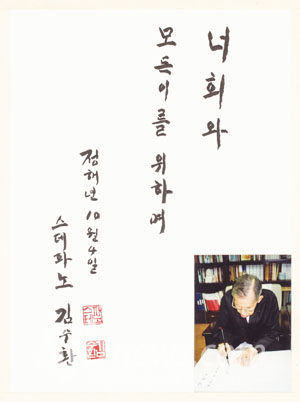 너희와
모든이를 위하여
정해년 10월 4일
스테파노 김수환